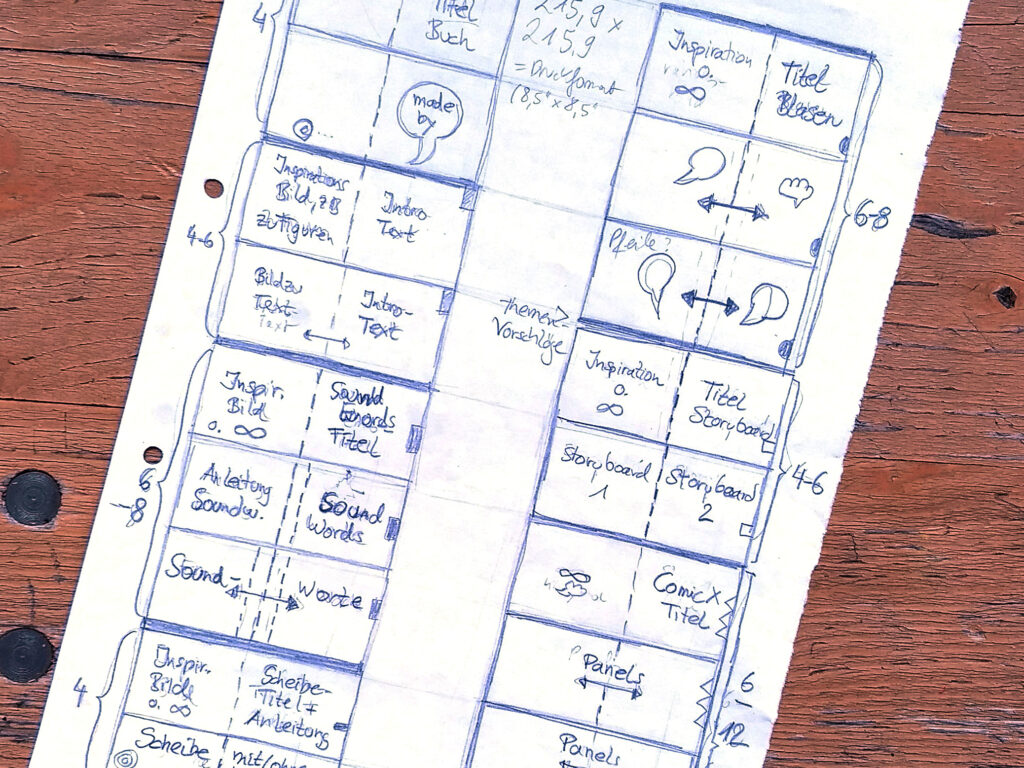 4
Titel
Buch
made
by
...
4-6
Inspirations
Bild, zB
zu Figuren
Intro
Text
Bild zu
Text-
Text
Intro-
Text
6
-8
Inspir.
Bild
o. ∞
Sound
words
Titel
Anleitung
Soundw.
Sound
Words
Sound-
Worte
4
Inspir.
Bild
o. ∞
Scheibe-
Titel +
Anleitung
Scheibe
mit/ohne
215,9 x
215,9
= Druckformat
(8,5" x 8,5"
Themen-
Vorschläge
Inspiration
o.
∞
Titel
Blasen
6-8
Pfeile?
Inspiration
o.
∞
Titel
Storyboard
4-6
Storyboard
1
Storyboard
2
∞
Comic X
Titel
Panels
6
-
12
Panels